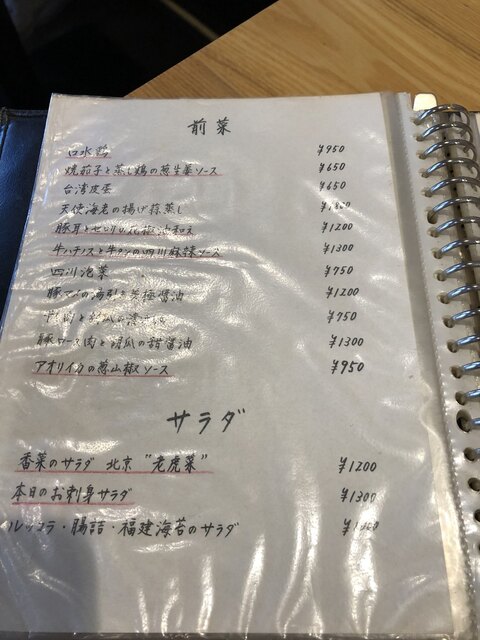 前菜
口水鶏 ¥950
焼茄子と蒸し鶏の葱生姜ソース ¥650
台湾皮蛋 ¥650
天使海老の揚げ蒜蒸し
豚耳とセロリの花椒油和え ¥1200
牛ハチノスと牛の四川麻辣ソース ¥1300
四川泡菜 ¥750
豚マメの湯引き 醤油 ¥1200
と の ¥750
豚ロース肉と胡瓜の甜醤油 ¥1300
アオリイカの葱山椒ソース ¥950
サラダ
香菜のサラダ 北京 "老虎菜" ¥1200
本日のお刺身サラダ ¥1300
ルッコラ・腸詰・福建海苔のサラダ